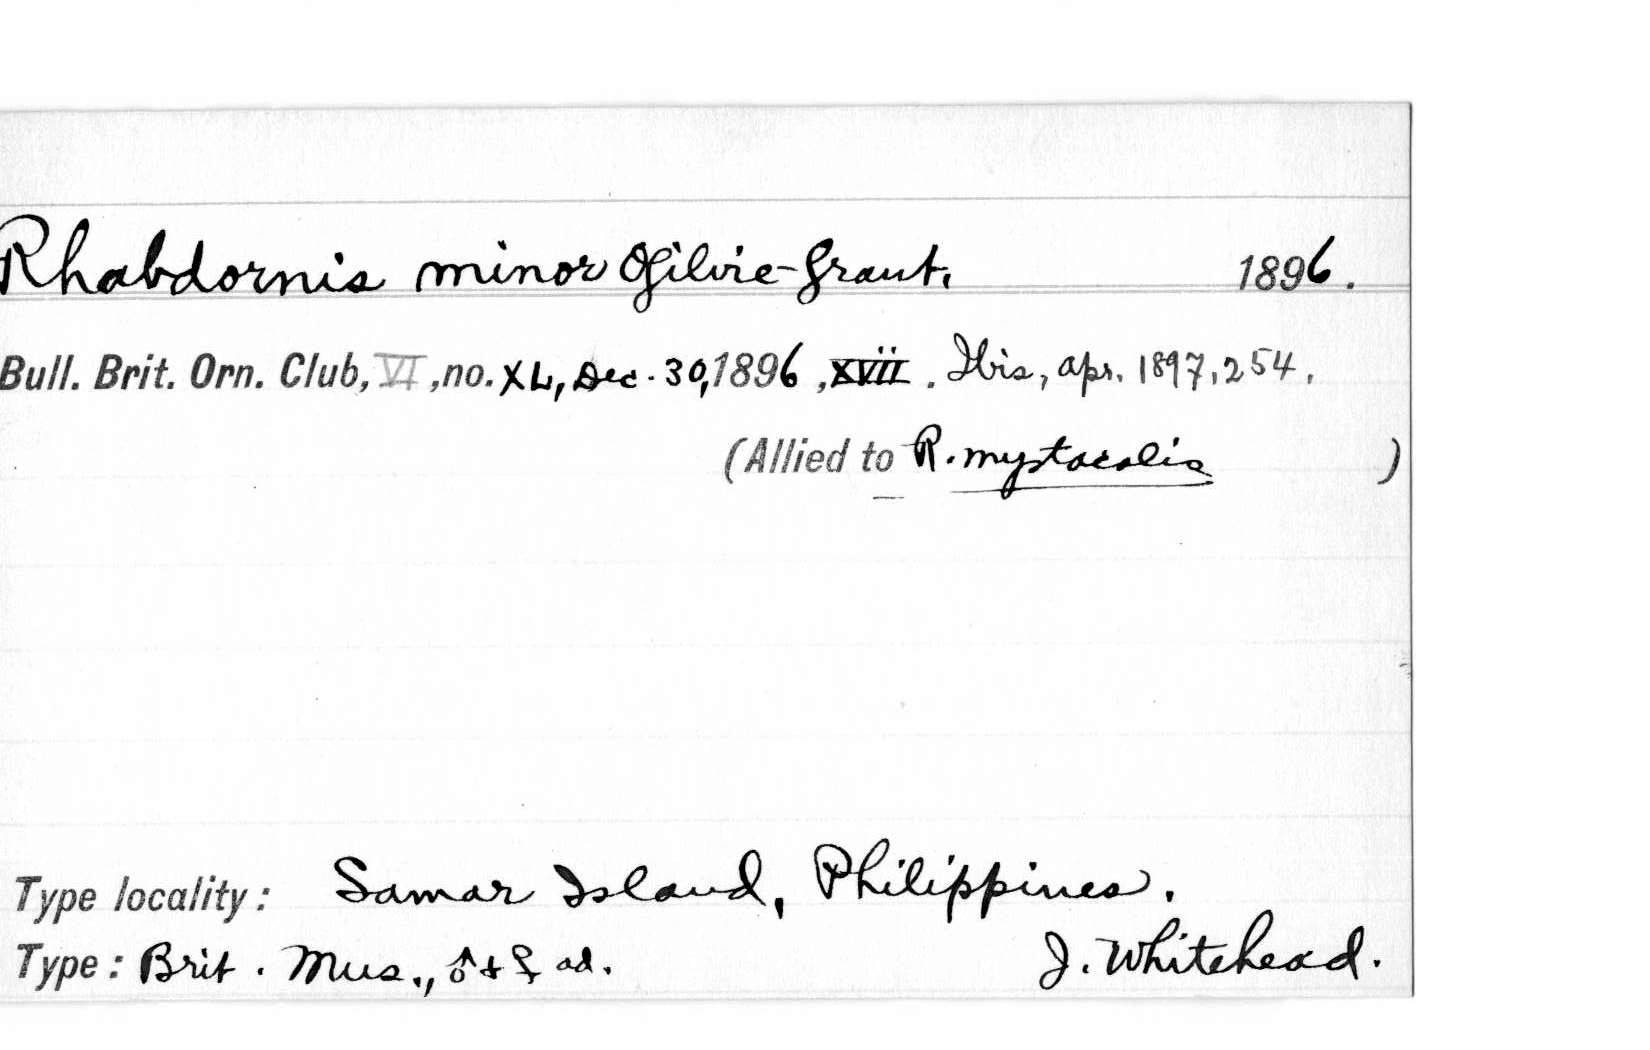 Rhabdornis minor Ogilvie-Grant. 1896.
Bull. Brit. Orn. Club, VI, no. XL, Dec. 30, 1896, xvii. Ibis, Apr. 1897, 254.
(Allied to R. mystacalis )
Type locality: Samar Island, Philippines.
Type: Brit. Mus., ♂ + ♀ ad. J. Whitehead.